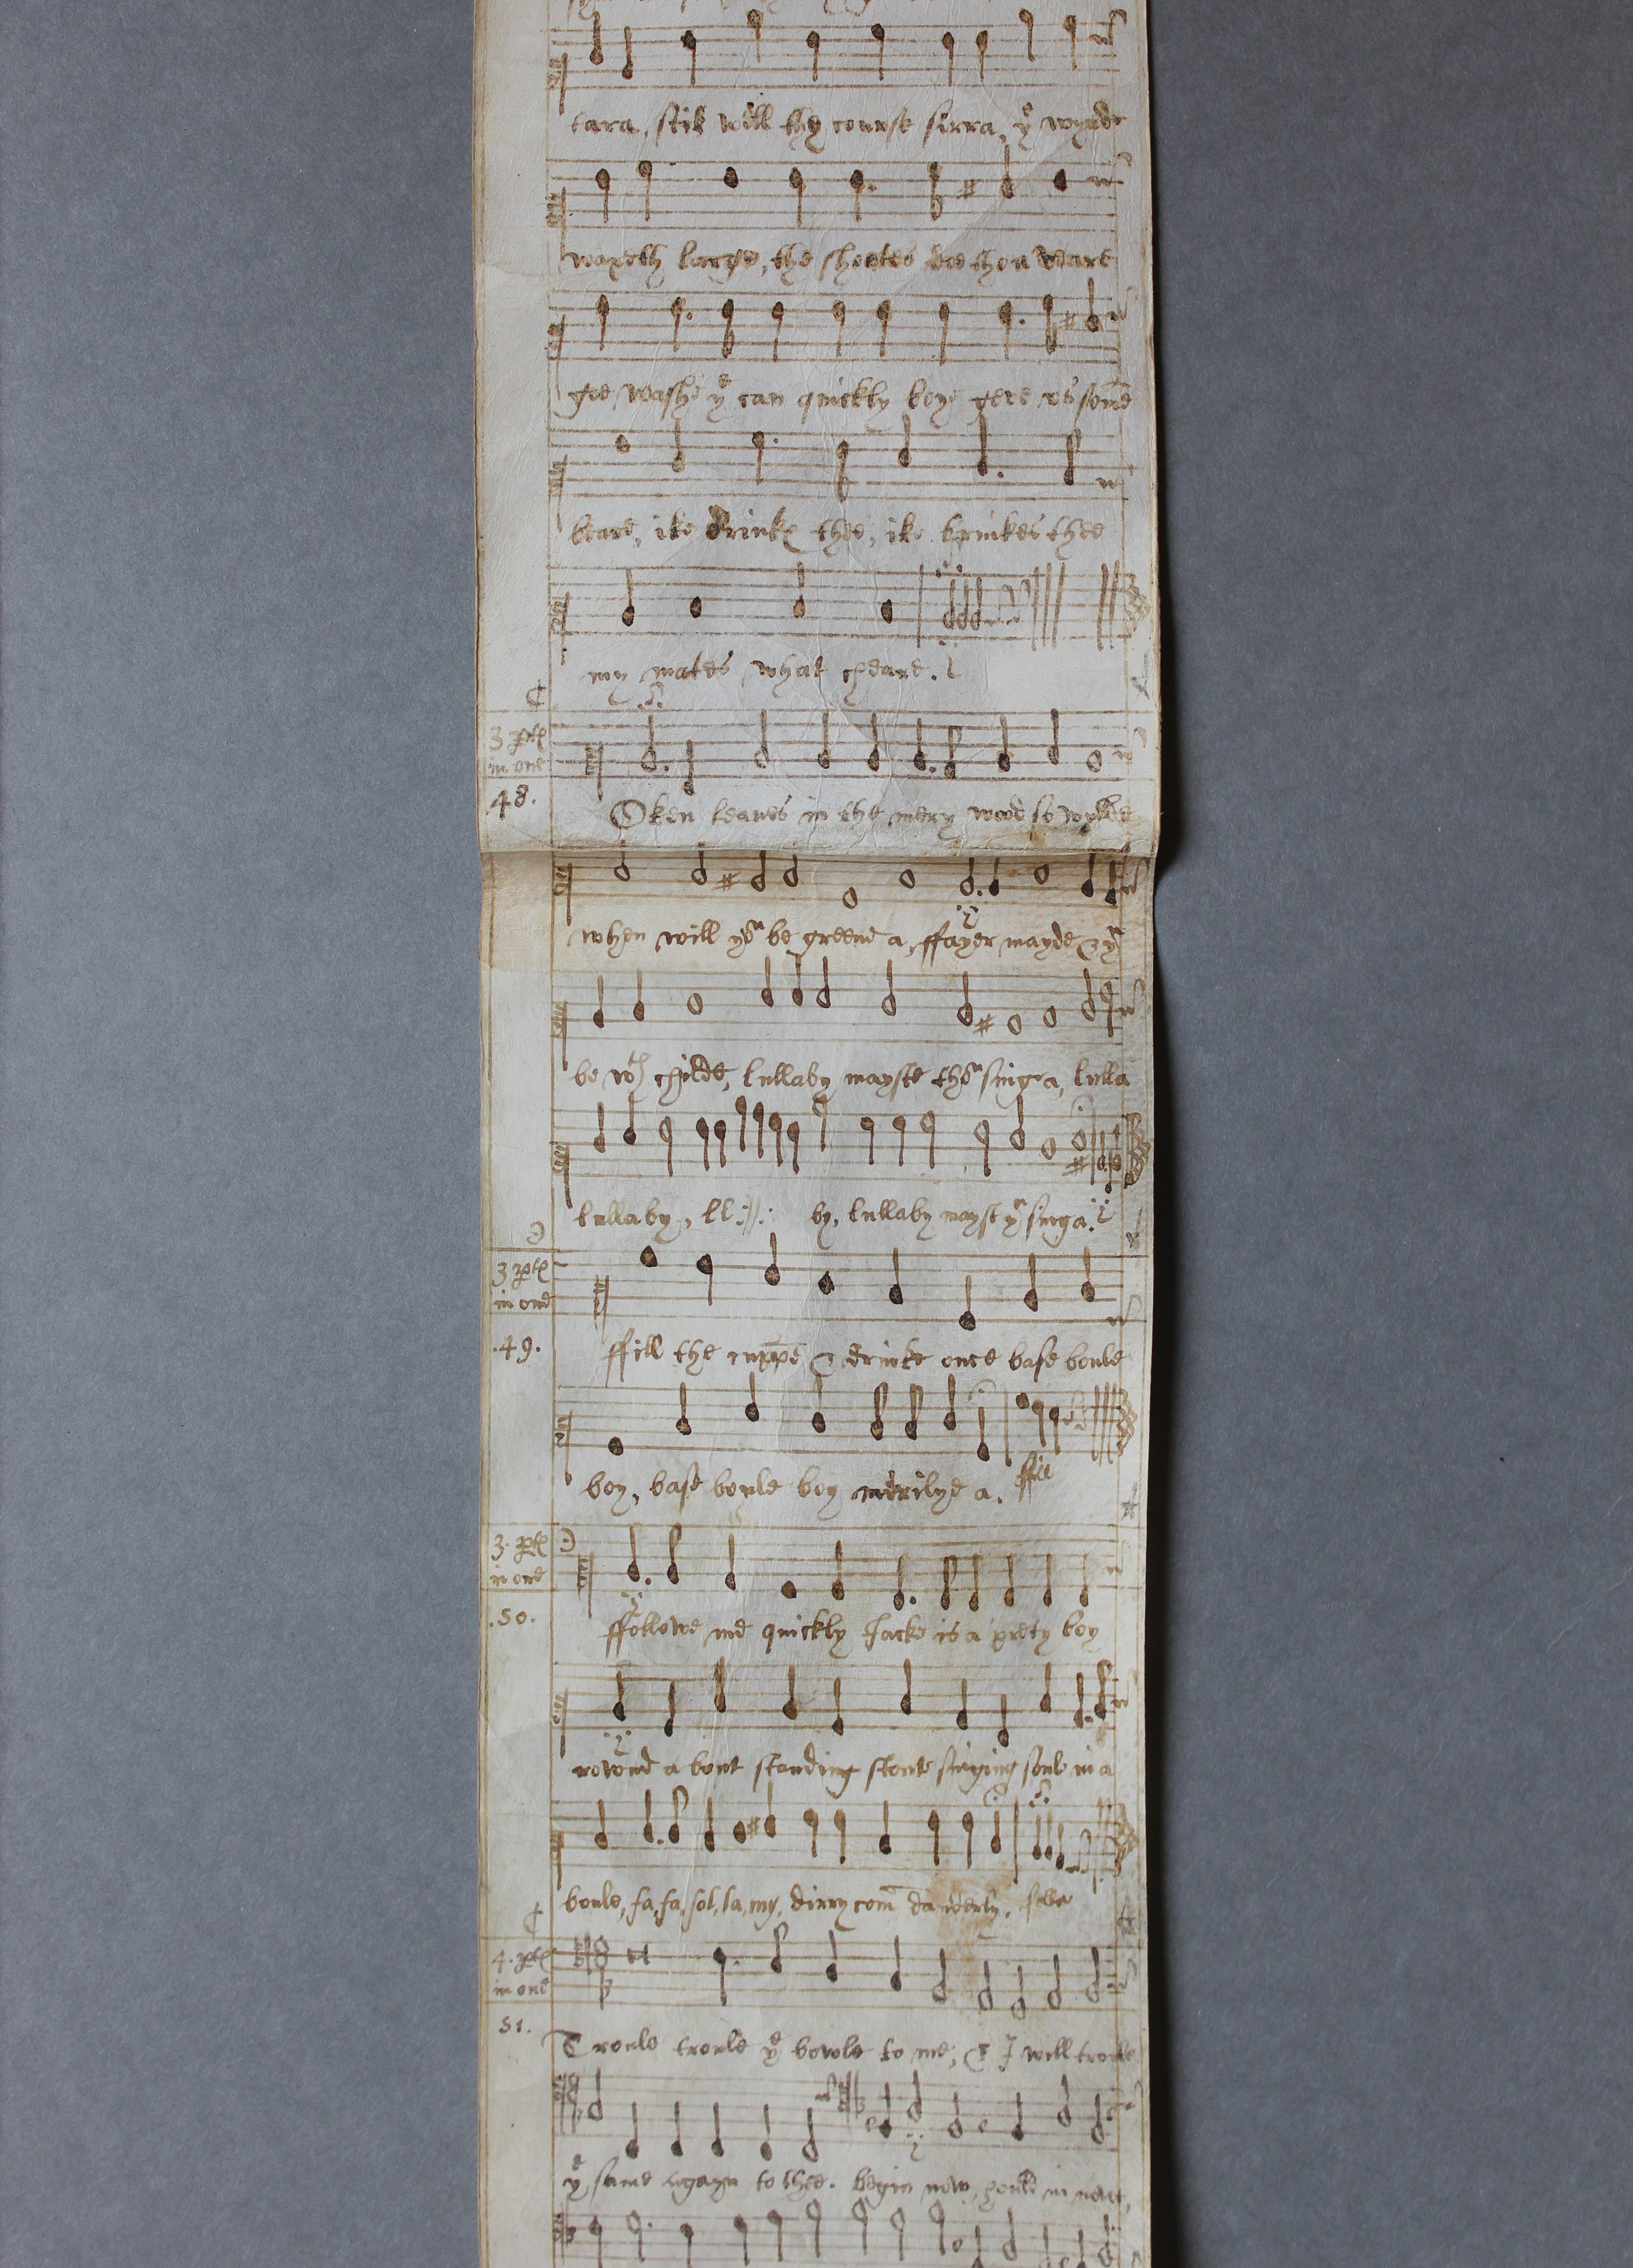 tara, still will thy course sirra, yᵉ wynde
waxeth large, the sheetes doe thou veare
goe washe yᵉ can quickly boye geve us some
beare, ike drinke thee, ike brinkes thee
my mates what cheare.
3 ptes
in one
48.
Oken leaves in the mery wood so wylde
when will yoᵘ be greene a, ffayer mayde & yᵘ
be wᵗʰ childe, lullaby mayste thoᵘ singe a, lulla
lullaby, ll :||: by, lullaby mayst yᵘ singa.
3 ptes
in one
.49.
ffill the cuppe & drinke once base boule
boy, base boule boy merilye a. ffill
3. ptes
in one
.50.
ffollowe me quickly Jacke is a prety boy
rownd a bout standing stoute singing soule in a
boule, fa, fa, sol, la, my, dirry com danderly.
4. ptes
in one
51.
Troule troule yᵉ bowle to me, & I will troule
yᵉ same agayn to thee. begin now, in now,